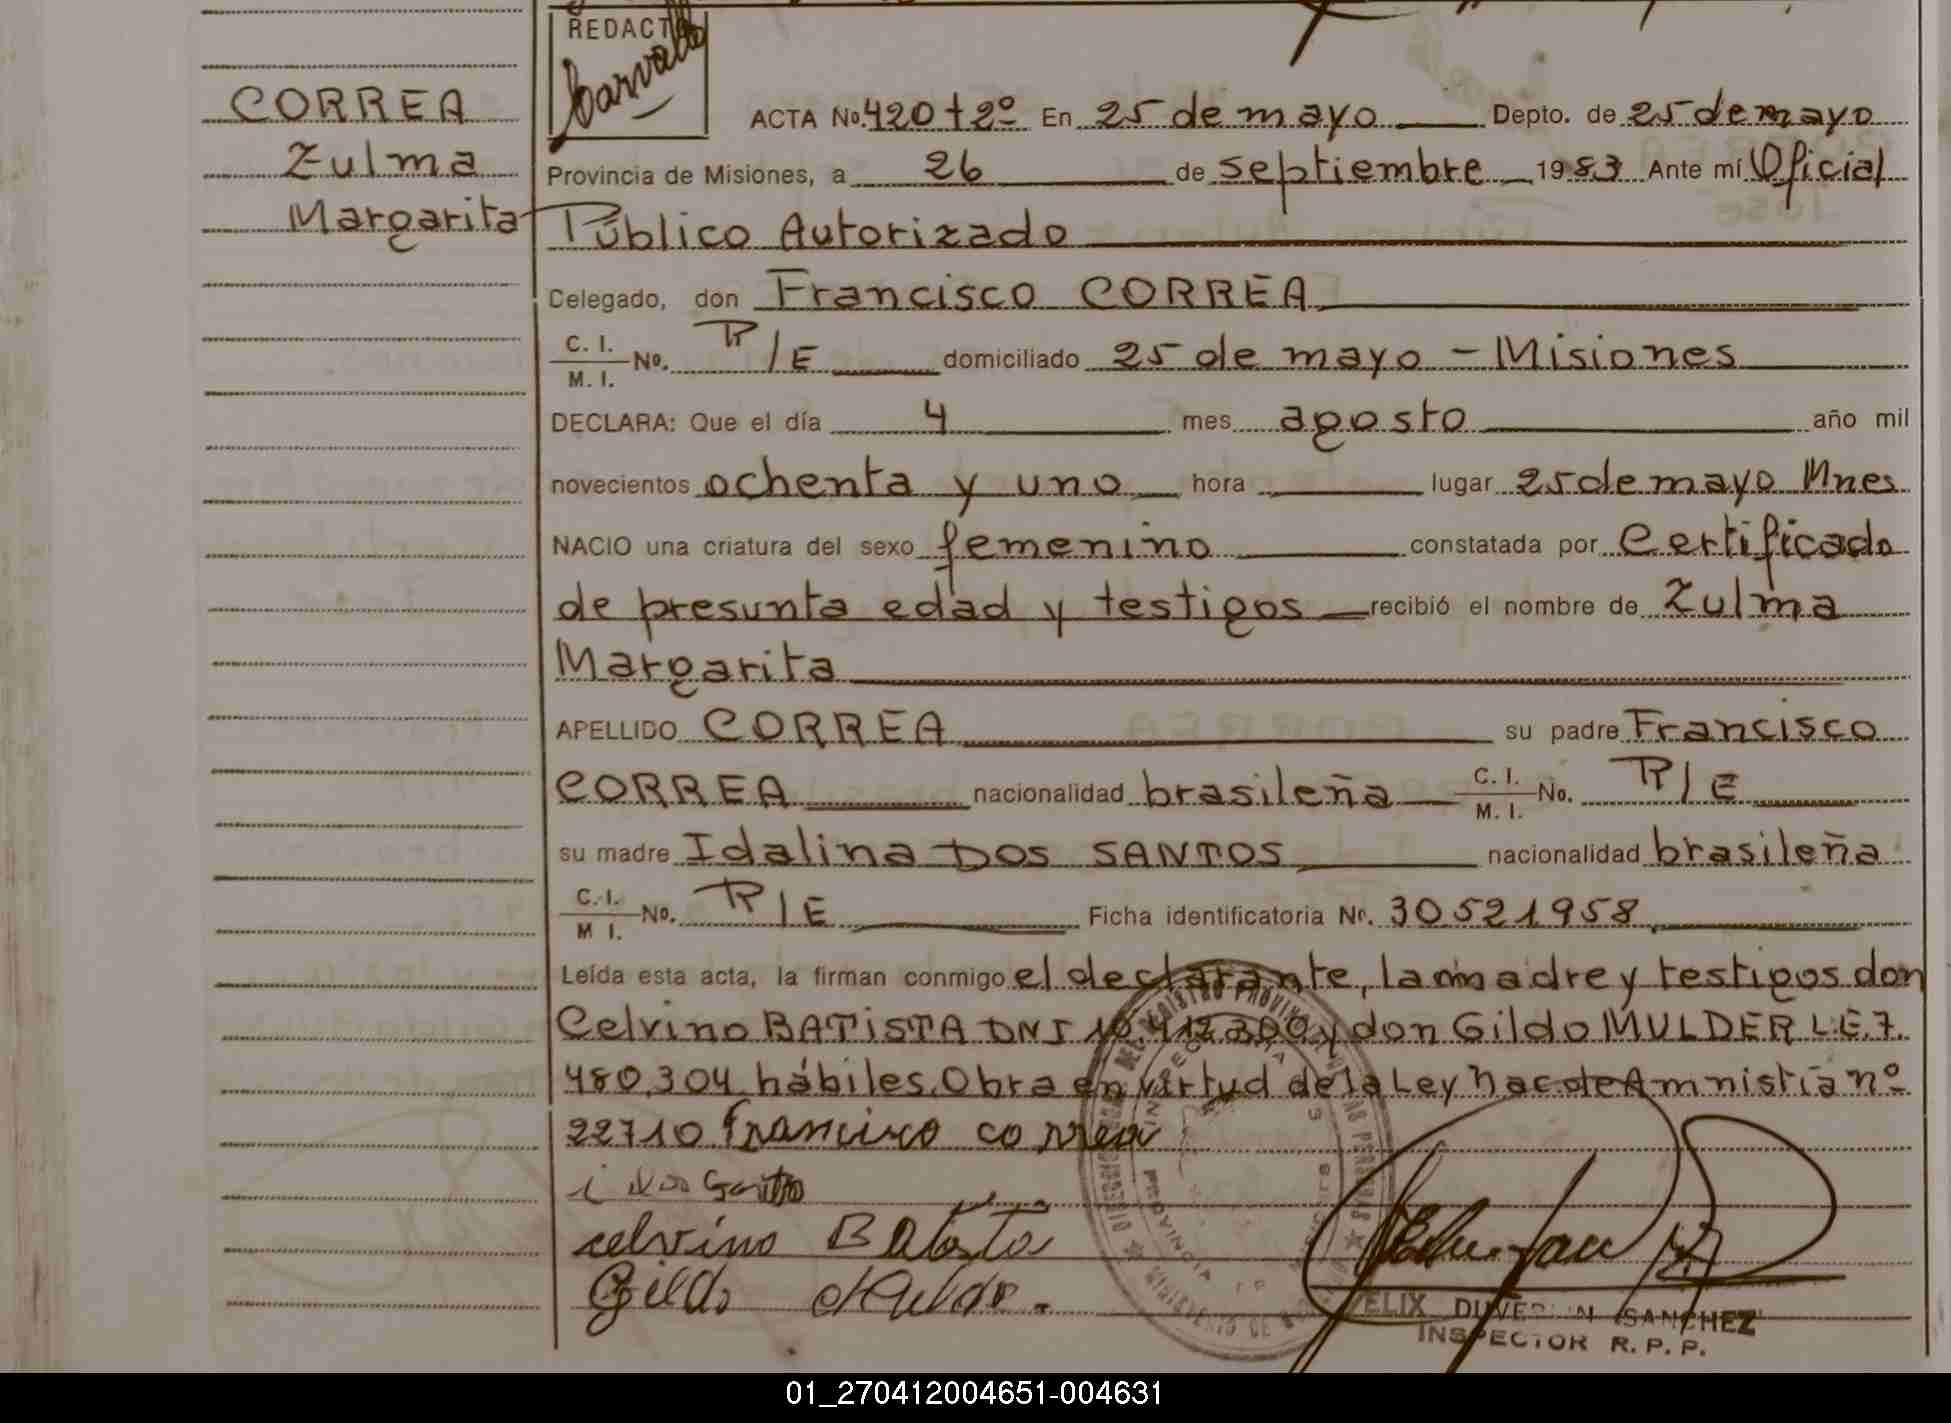 REDACTO
Carvallo
CORREA
Zulma
Margarita
ACTA No. 420 t 2º En 25 de mayo Depto. de 25 de mayo
Provincia de Misiones, a 26 de septiembre 1983 Ante mí Oficial
Público Autorizado
Celegado, don Francisco CORREA
C. I. / M. I. No. R/E domiciliado 25 de mayo - Misiones
DECLARA: Que el día 4 mes agosto año mil
novecientos ochenta y uno hora lugar 25 de mayo Mnes
NACIO una criatura del sexo femenino constatada por Certificado
de presunta edad y testigos recibió el nombre de Zulma
Margarita
APELLIDO CORREA su padre Francisco
CORREA nacionalidad brasileña C. I. / M. I. No. R/E
su madre Idalina DOS SANTOS nacionalidad brasileña
C. I. / M I. No. R/E Ficha identificatoria Nº. 30521958
Leída esta acta, la firman conmigo el declarante, la madre y testigos don
Celvino BATISTA DNI 10.412.300 y don Gildo MULDER L.E. 7.
480.304 hábiles. Obra en virtud de la Ley Nac. de Amnistía nº
22710 Francisco correa
i dos Santos
celvino Batista
Gildo Mulder.
FELIX SANCHEZ
INSPECTOR R. P. P.
01_270412004651-004631